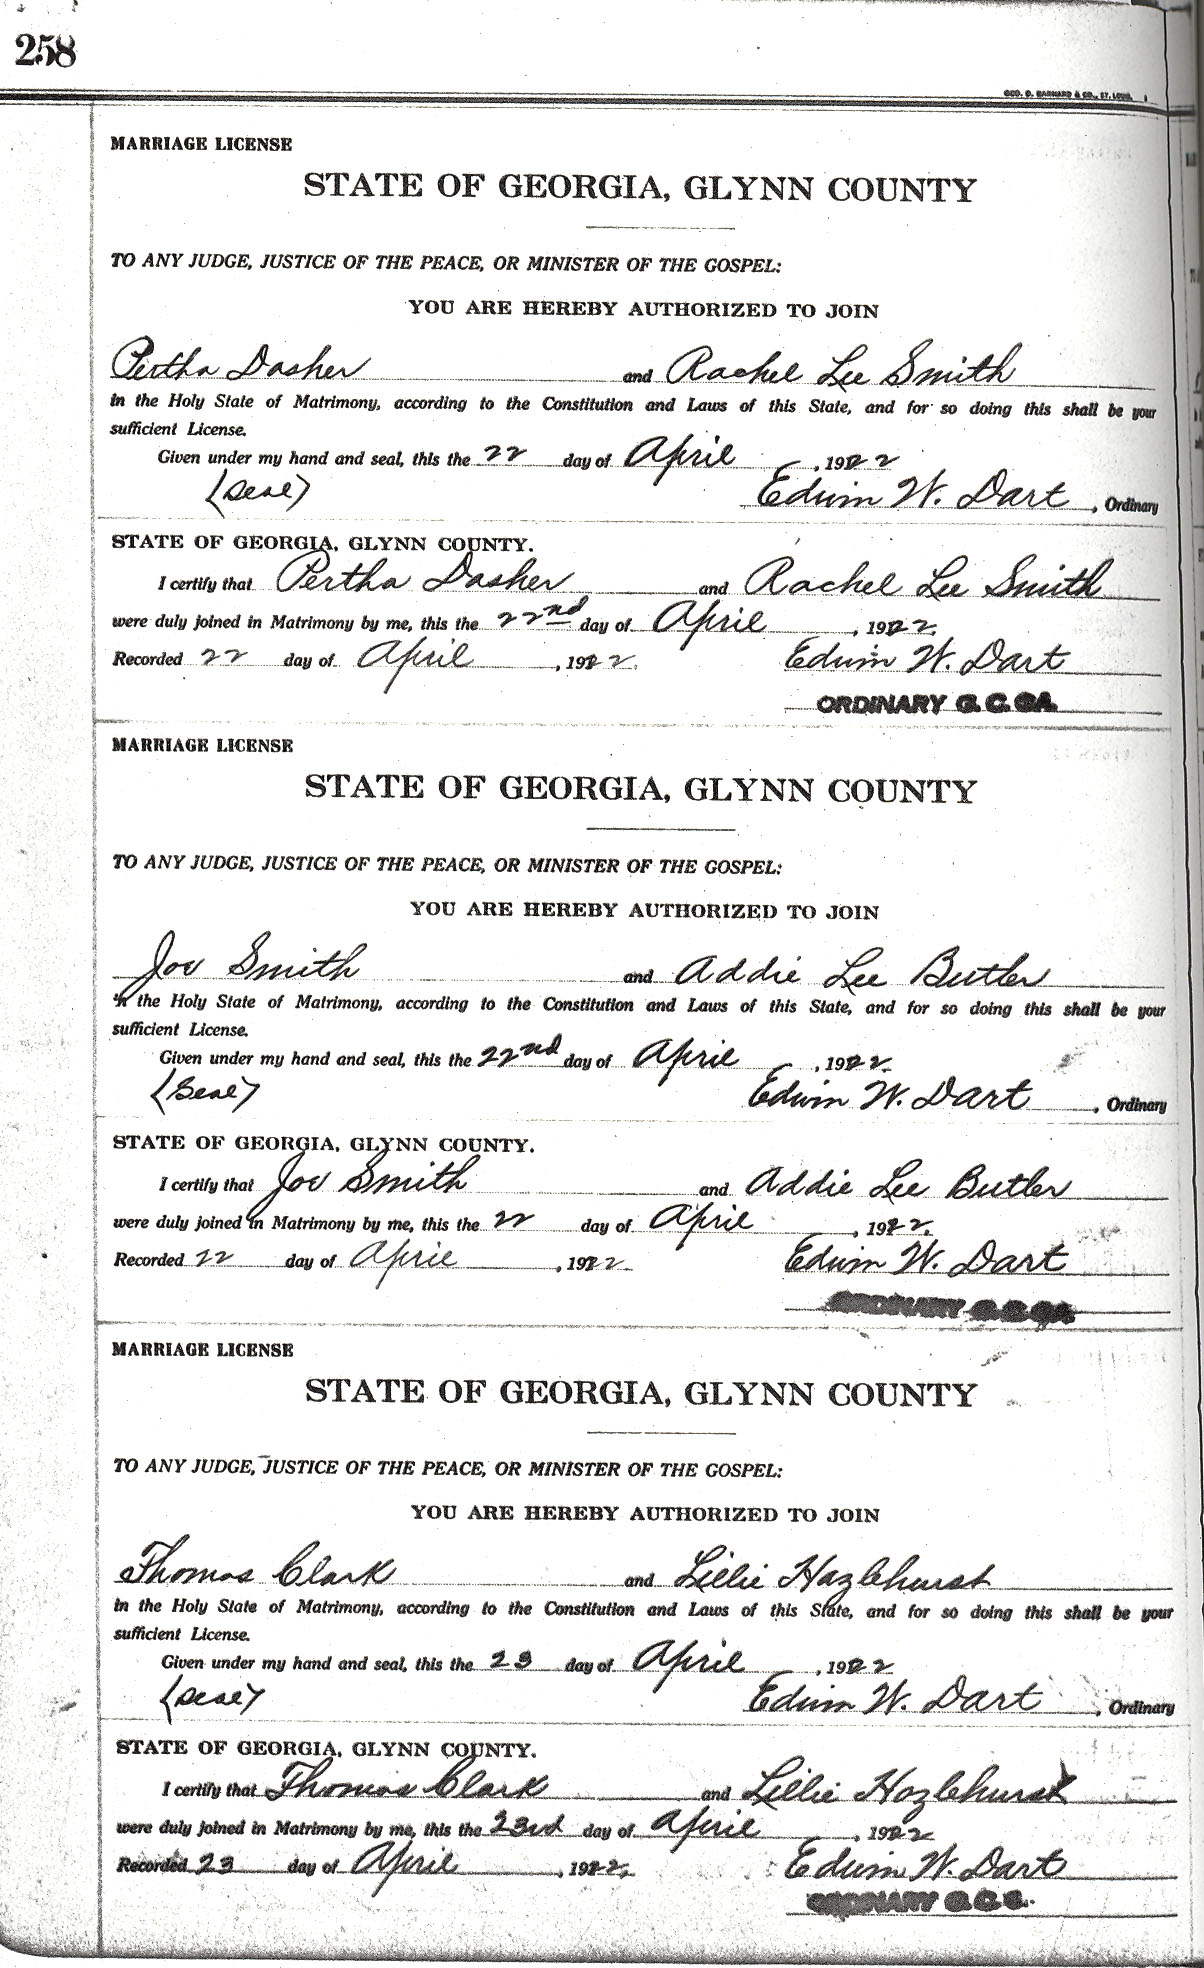 258
GEO. D. BARNARD & CO., ST. LOUIS.
MARRIAGE LICENSE
STATE OF GEORGIA, GLYNN COUNTY
TO ANY JUDGE, JUSTICE OF THE PEACE, OR MINISTER OF THE GOSPEL:
YOU ARE HEREBY AUTHORIZED TO JOIN
Pertha Dasher and Rachel Lee Smith
in the Holy State of Matrimony, according to the Constitution and Laws of this State, and for so doing this shall be your
sufficient License.
Given under my hand and seal, this the 22 day of April, 1922
(Seal) Edwin W. Dart, Ordinary
STATE OF GEORGIA, GLYNN COUNTY.
I certify that Pertha Dasher and Rachel Lee Smith
were duly joined in Matrimony by me, this the 22nd day of April, 1922.
Recorded 22 day of April, 1922. Edwin W. Dart
ORDINARY G. C. GA.
MARRIAGE LICENSE
STATE OF GEORGIA, GLYNN COUNTY
TO ANY JUDGE, JUSTICE OF THE PEACE, OR MINISTER OF THE GOSPEL:
YOU ARE HEREBY AUTHORIZED TO JOIN
Joe Smith and Addie Lee Butler
in the Holy State of Matrimony, according to the Constitution and Laws of this State, and for so doing this shall be your
sufficient License.
Given under my hand and seal, this the 22nd day of April, 1922.
(Seal) Edwin W. Dart, Ordinary
STATE OF GEORGIA, GLYNN COUNTY.
I certify that Joe Smith and Addie Lee Butler
were duly joined in Matrimony by me, this the 22 day of April, 1922.
Recorded 22 day of April, 1922. Edwin W. Dart
ORDINARY G. C. GA.
MARRIAGE LICENSE
STATE OF GEORGIA, GLYNN COUNTY
TO ANY JUDGE, JUSTICE OF THE PEACE, OR MINISTER OF THE GOSPEL:
YOU ARE HEREBY AUTHORIZED TO JOIN
Thomas Clark and Lillie Hazlehurst
in the Holy State of Matrimony, according to the Constitution and Laws of this State, and for so doing this shall be your
sufficient License.
Given under my hand and seal, this the 23 day of April, 1922
(Seal) Edwin W. Dart, Ordinary
STATE OF GEORGIA, GLYNN COUNTY.
I certify that Thomas Clark and Lillie Hazlehurst
were duly joined in Matrimony by me, this the 23rd day of April, 1922
Recorded 23 day of April, 1922. Edwin W. Dart
ORDINARY G. C. G.